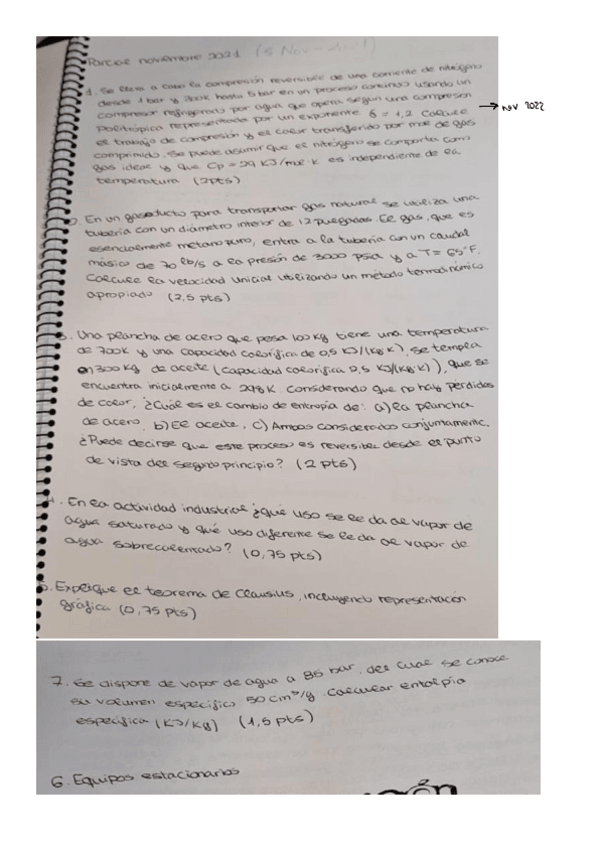 Parcial noviembre 2021 (5 Nov
1. Se lleva a cabo la compresión reversible de una corriente de nitrógeno
desde 1 bar y 300K hasta 5 bar en un proceso continuo usando un
compresor refrigerado por agua que opera según una compresión
politrópica representada por un exponente δ = 1,2 Calcule
el trabajo de compresión y el calor transferido por mol de gas
comprimido. Se puede asumir que el nitrógeno se comporta como
gas ideal y que Cp = 29 KJ/mol·K es independiente de la
temperatura (2pts)
→ Nov 2022
2. En un gaseoducto para transportar gas natural se utiliza una
tubería con un diámetro interior de 12 pulgadas. El gas, que es
esencialmente metano puro, entra a la tubería con un caudal
másico de 70 lb/s a la presión de 3000 psia y a T = 65°F.
Calcule la velocidad inicial utilizando un método termodinámico
apropiado (2,5 pts)
3. Una plancha de acero que pesa 100 kg tiene una temperatura
de 700K y una capacidad calorífica de 0,5 KJ/(kg K), se templa
en 300 kg de aceite (capacidad calorífica 2,5 KJ/(kg·K)), que se
encuentra inicialmente a 298K. Considerando que no hay pérdidas
de calor, ¿Cuál es el cambio de entropía de: a) la plancha
de acero, b) El aceite, c) Ambos considerados conjuntamente.
¿Puede decirse que este proceso es reversible desde el punto
de vista del segundo principio? (2 pts)
4. En la actividad industrial ¿qué uso se le da al vapor de
agua saturado y qué uso diferente se le da al vapor de
agua sobrecalentado? (0,75 pts)
5. Explique el teorema de Clausius, incluyendo representación
gráfica (0,75 pts)
7. Se dispone de vapor de agua a 85 bar, del cual se conoce
su volumen específico 50 cm³/g. Calcular entalpía
específica (KJ/Kg) (1,5 pts)
6. Equipos estacionarios